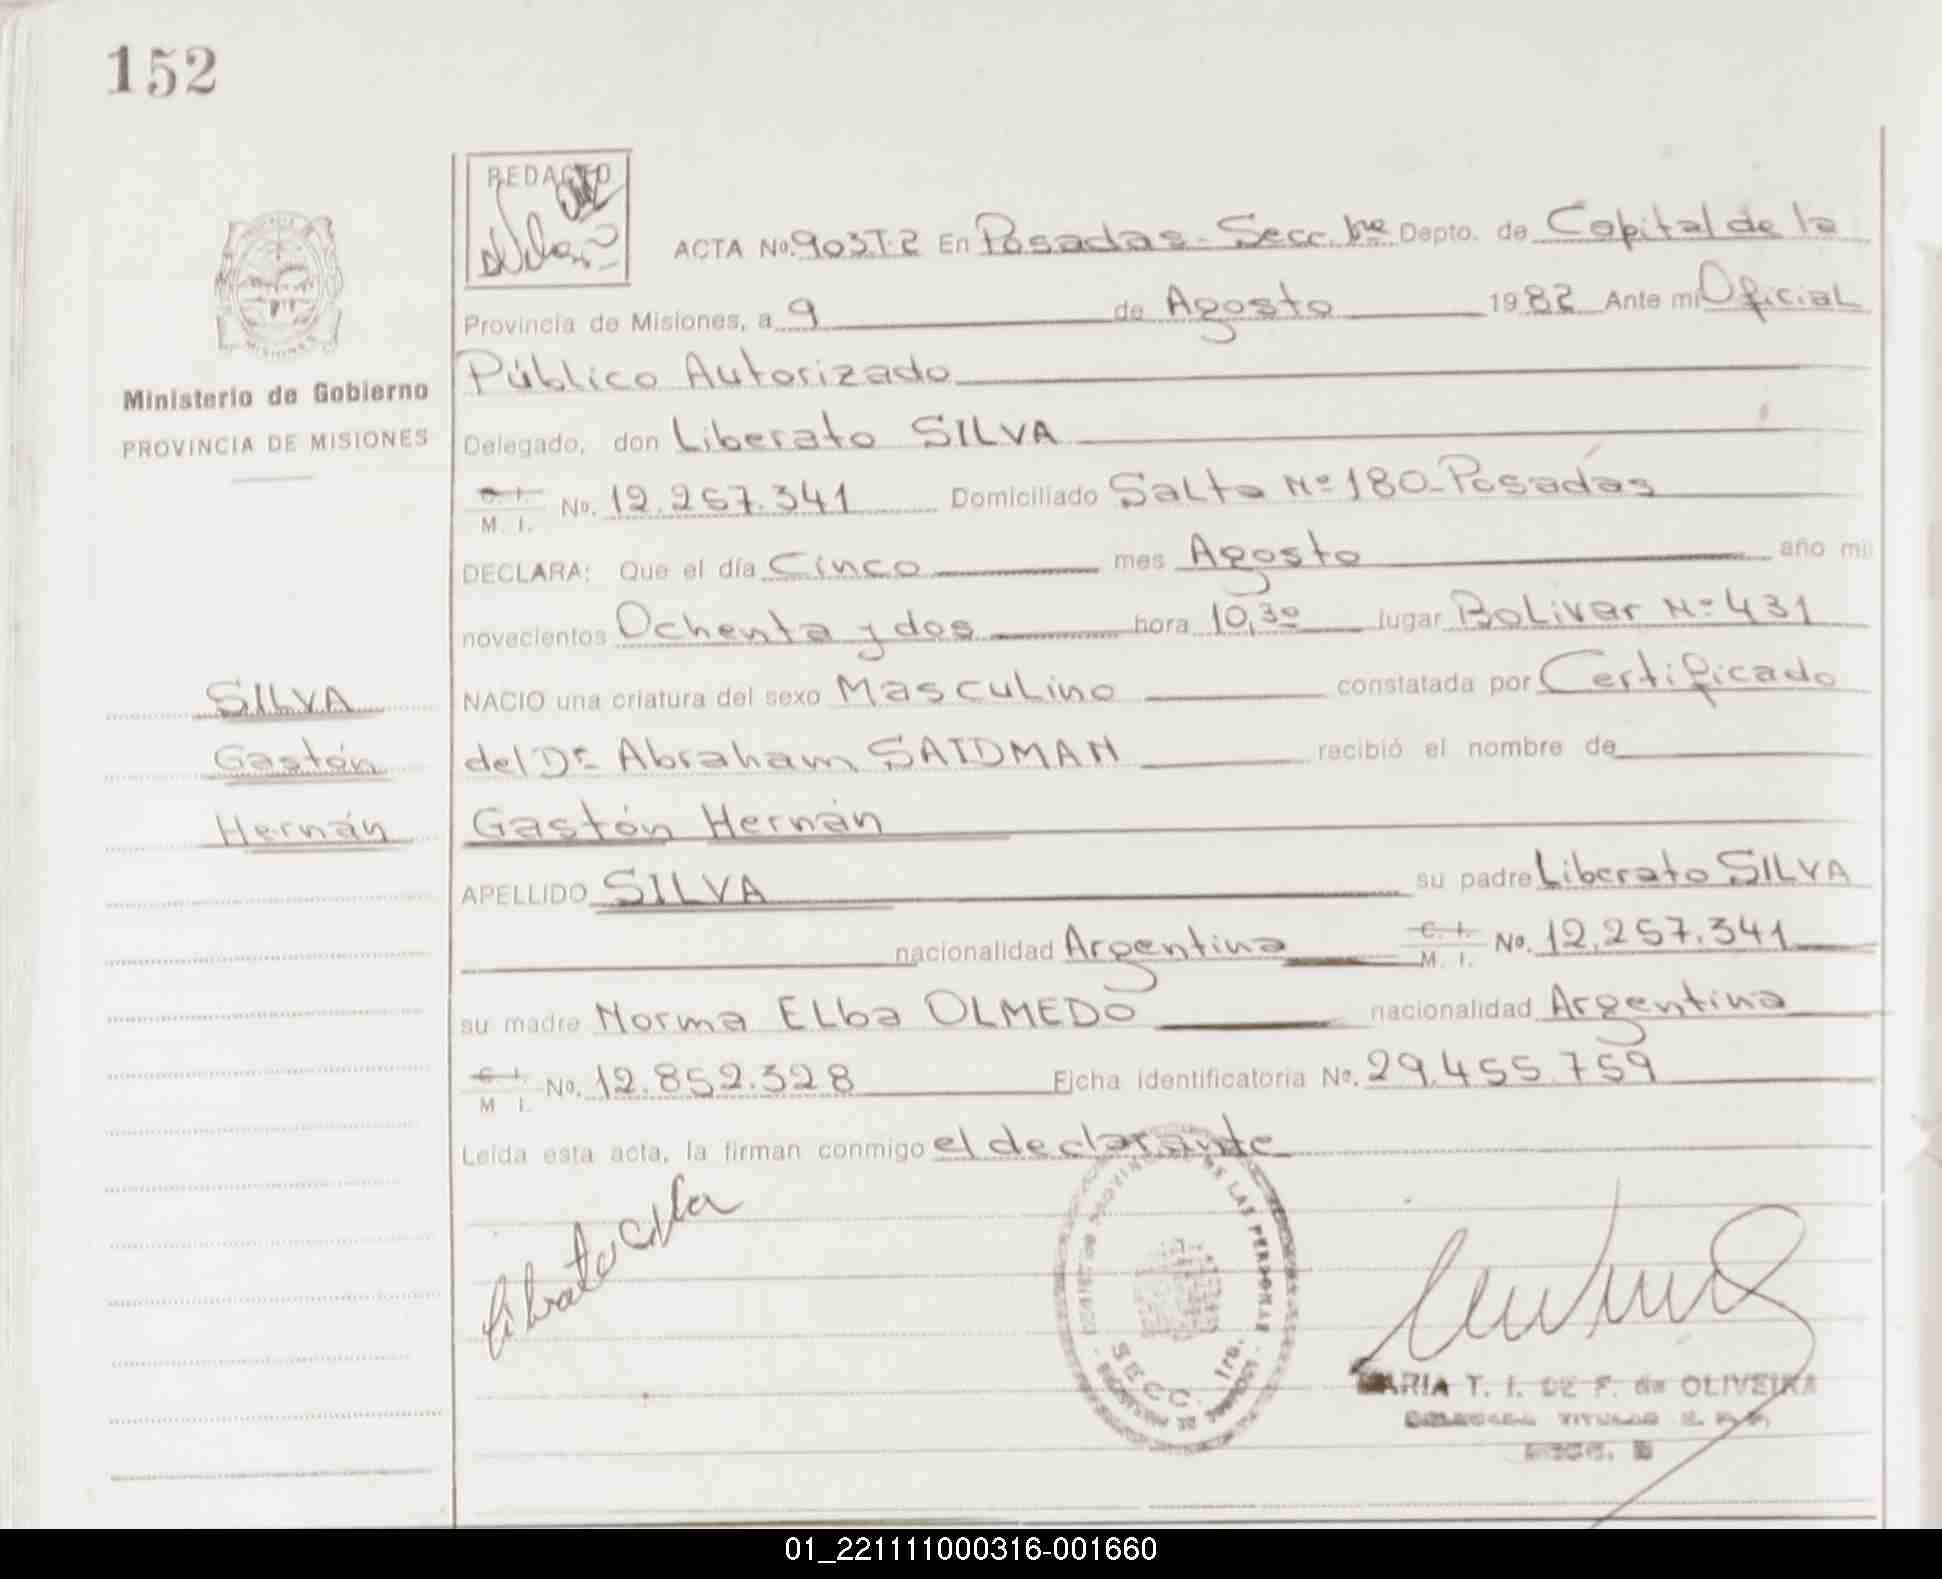 152
REDACTO
ACTA No. 903T.2 En Posadas - Secc. 1ra Depto. de Capital de la
Provincia de Misiones, a 9 de Agosto 1982 Ante mi Oficial
Público Autorizado
Ministerio de Gobierno
PROVINCIA DE MISIONES
Delegado, don Liberato SILVA
C. I. M. I. No. 12.257.341 Domiciliado Salta Nº 180 - Posadas
DECLARA: Que el día Cinco mes Agosto año mil
novecientos Ochenta y dos hora 10,30 lugar Bolivar Nº 431
NACIO una criatura del sexo Masculino constatada por Certificado
del Dr. Abraham SAIDMAN recibió el nombre de
Gastón Hernán
SILVA
Gastón
Hernán
APELLIDO SILVA su padre Liberato SILVA
nacionalidad Argentina C. I. M. I. No. 12.257.341
su madre Norma Elba OLMEDO nacionalidad Argentina
C. I. M. I. No. 12.852.328 Ficha identificatoria No. 29.455.759
Leida esta acta, la firman conmigo el declarante
Liberato Silva
DE LAS PERSONAS
SECC. 1ra.
MARIA T. I. DE F. de OLIVEIRA
01_221111000316-001660